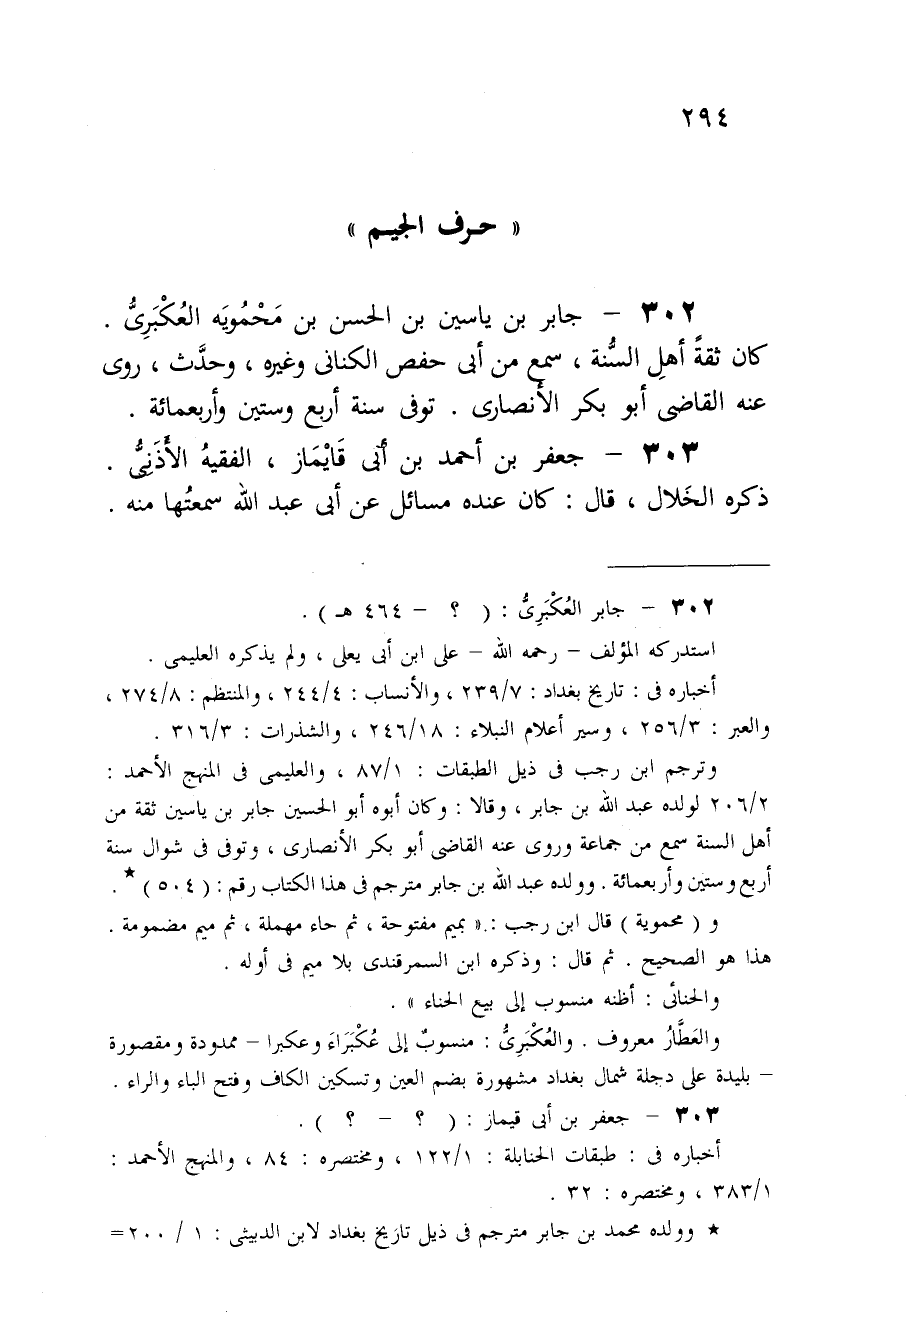 ٢٩٤
« حرف الجيم »
٣٠٢ - جابر بن ياسين بن الحسن بن مَحْمُويَه العُكْبَرِىُّ .
كان ثقةً أهلِ السُّنة ، سمع من أبى حفص الكنانى وغيره ، وحدَّث ، روى
عنه القاضى أبو بكر الأنصارى . توفى سنة أربع وستين وأربعمائة .
٣٠٣ - جعفر بن أحمد بن أبى قَايْمَاز ، الفقيهُ الأَذَنِىُّ .
ذكره الخَلال ، قال : كان عنده مسائل عن أبى عبد الله سمعتُها منه .
٣٠٢ - جابر العُكْبَرِىُّ : ( ؟ - ٤٦٤ هـ ) .
استدركه المؤلف - رحمه الله - على ابن أبى يعلى ، ولم يذكره العليمى .
أخباره فى : تاريخ بغداد : ٢٣٩/٧ ، والأنساب : ٢٤٤/٤ ، والمنتظم : ٢٧٤/٨ ،
والعبر : ٢٥٦/٣ ، وسير أعلام النبلاء : ٢٤٦/١٨ ، والشذرات : ٣١٦/٣ .
وترجم ابن رجب فى ذيل الطبقات : ٨٧/١ ، والعليمى فى المنهج الأحمد :
٢٠٦/٢ لولده عبد الله بن جابر ، وقالا : وكان أبوه أبو الحسين جابر بن ياسين ثقة من
أهل السنة سمع من جماعة وروى عنه القاضى أبو بكر الأنصارى ، وتوفى فى شوال سنة
أربع وستين وأربعمائة . وولده عبد الله بن جابر مترجم فى هذا الكتاب رقم : ( ٥٠٤ ) * .
و ( محموية ) قال ابن رجب : « بميم مفتوحة ، ثم حاء مهملة ، ثم ميم مضمومة .
هذا هو الصحيح . ثم قال : وذكره ابن السمرقندى بلا ميم فى أوله .
والحنائى : أظنه منسوب إلى بيع الحناء » .
والعَطَّارُ معروف . والعُكْبَرِىُّ : منسوبٌ إلى عُكْبَرَاءَ وعكبرا - ممدودة ومقصورة
- بليدة على دجلة شمال بغداد مشهورة بضم العين وتسكين الكاف وفتح الباء والراء .
٣٠٣ - جعفر بن أبى قيماز : ( ؟ - ؟ ) .
أخباره فى : طبقات الحنابلة : ١٢٢/١ ، ومختصره : ٨٤ ، والمنهج الأحمد :
٣٨٣/١ ، ومختصره : ٣٢ .
* وولده محمد بن جابر مترجم فى ذيل تاريخ بغداد لابن الدبيثى : ١ / ٢٠٠=